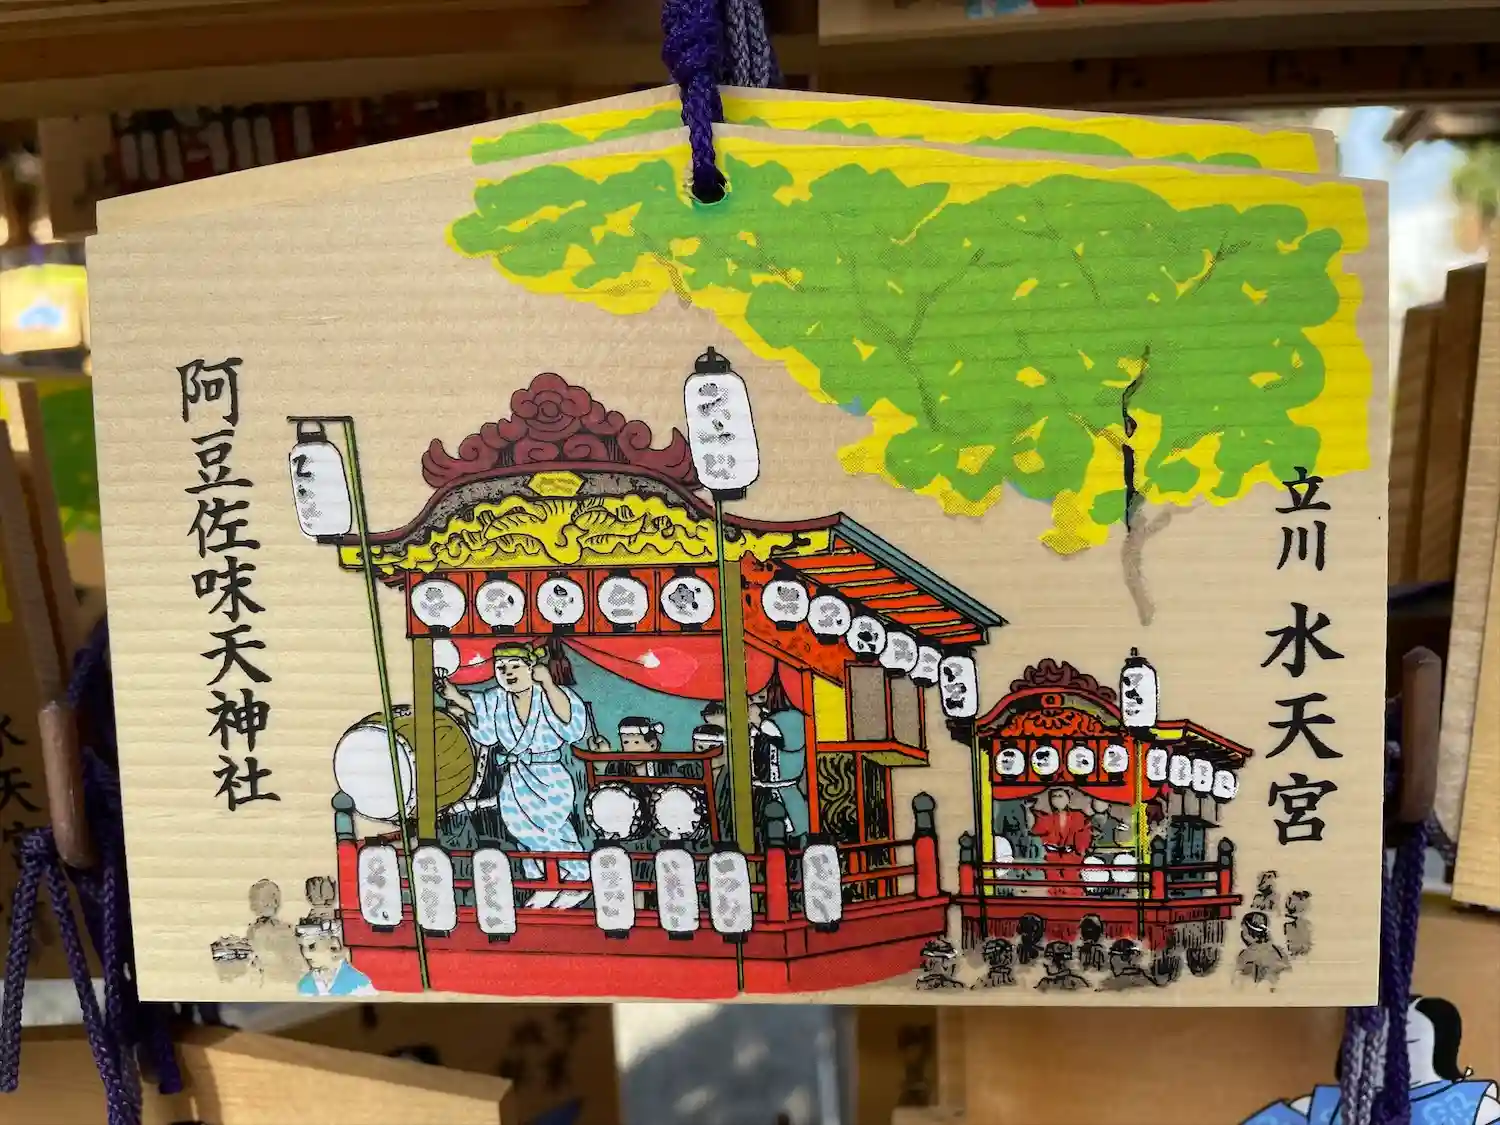 立川 水天宮
阿豆佐味天神社